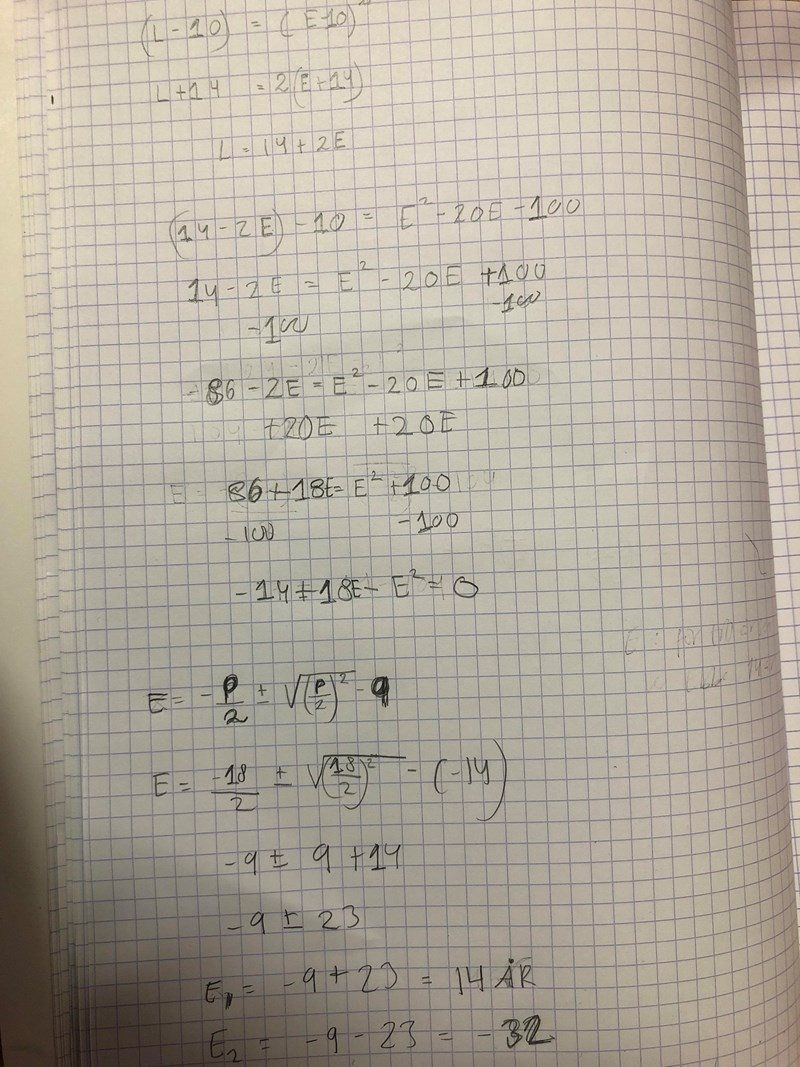 (L-10) = (E-10)²
L+14 = 2(E+14)
L = 14 + 2E
(14-2E) -10 = E² - 20E -100
14 - 2E = E² - 20E +100
-100 -100
-86 - 2E = E² - 20E + 100
+20E +20E
86 + 18E = E² +100
-100 -100
-14 + 18E - E² = 0
E = -p/2 ± √(p/2)² - q
E = -18/2 ± √(18/2)² - (-14)
-9 ± 9 +14
-9 ± 23
E₁ = -9 + 23 = 14 ÅR
E₂ = -9 - 23 = -32